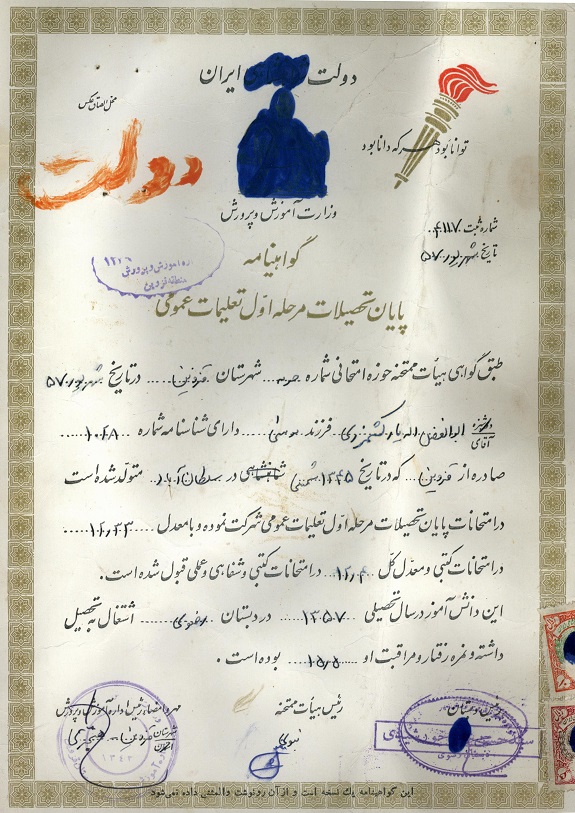 دولت ایران
محل الصاق عکس
توانا بود هر که دانا بود
دولت
وزارت آموزش و پرورش
شماره ثبت ۴۱۱۷
تاریخ شهریور ۵۷
گواهینامه
اداره آموزش و پرورش
منطقه قزوین
پایان تحصیلات مرحله اول تعلیمات عمومی
طبق گواهی هیأت ممتحنه حوزه امتحانی شماره شهرستان قزوین در تاریخ شهریور ۵۷
دوشیزه
آقای ابوالفضل اله یار فرزند موسی دارای شناسنامه شماره ۱۰۴۸
صادره از قزوین که در تاریخ ۱۳۴۵ شمسی شاهنشاهی در سلطان آباد متولد شده است
در امتحانات پایان تحصیلات مرحله اول تعلیمات عمومی شرکت نموده و با معدل
در امتحانات کتبی و معدل کل در امتحانات کتبی و شفاهی و عملی قبول شده است.
این دانش آموز در سال تحصیلی ۱۳۵۷ در دبستان رضوی اشتغال به تحصیل
داشته و نمره رفتار و مراقبت او ۱۵٫۵ بوده است.
مهر و امضاء رئیس اداره آموزش و پرورش
شهرستان
رئیس هیأت ممتحنه
۱۳۴۳
این گواهینامه یک نسخه است و از آن رونوشت والمثنی داده نمی‌شود